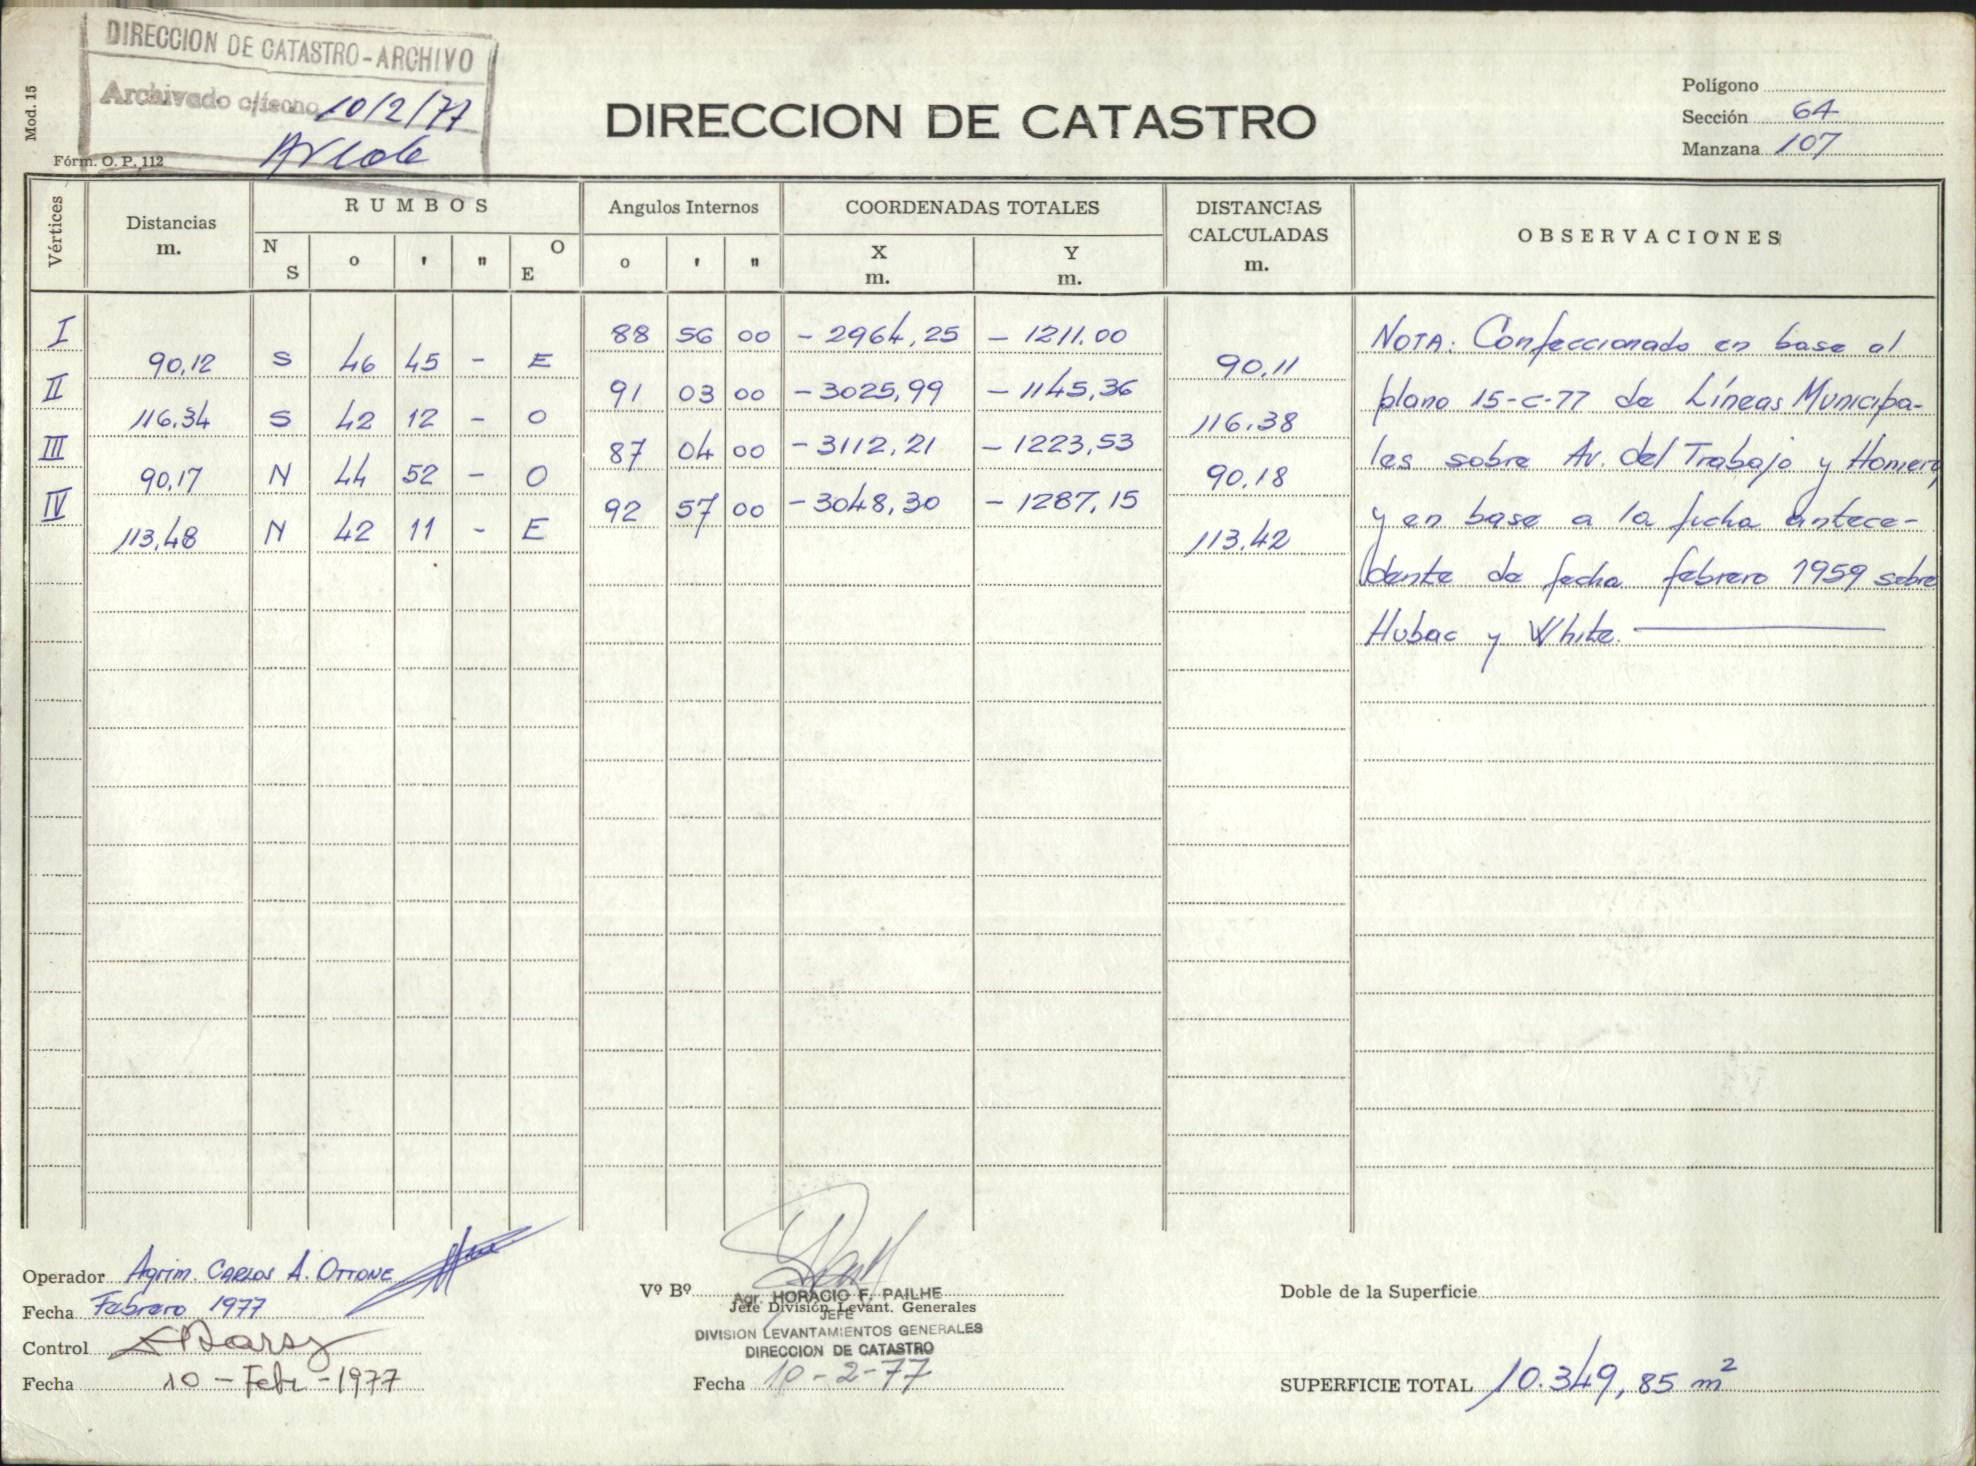 DIRECCION DE CATASTRO-ARCHIVO
Archivado c/fecha 10/2/77
Mod. 15
Fórm. O. P. 112
DIRECCION DE CATASTRO
Polígono
Sección 64
Manzana 107
Vértices
Distancias m.
RUMBOS
N S ° ' " O E
Angulos Internos
° ' "
COORDENADAS TOTALES
X m. Y m.
DISTANCIAS CALCULADAS m.
OBSERVACIONES
I 88 56 00 - 2964,25 - 1211.00
90,12 S 46 45 - E 90,11
II 91 03 00 - 3025,99 - 1145,36
116.34 S 42 12 - O 116.38
III 87 04 00 - 3112,21 - 1223,53
90,17 N 44 52 - O 90,18
IV 92 57 00 - 3048,30 - 1287,15
113,48 N 42 11 - E 113.42
NOTA: Confeccionado en base al
plano 15-C-77 de Líneas Municipa-
les sobre Av. del Trabajo y Homero
y en base a la ficha antece-
dente de fecha febrero 1959 sobre
Hubac y White.
Operador Agrim. CARLOS A. OTTONE
Fecha Febrero 1977
Control
Fecha 10 - Feb - 1977
Vº Bº
Agr. HORACIO F. PAILHE
Jefe División Levant. Generales
JEFE
DIVISION LEVANTAMIENTOS GENERALES
DIRECCION DE CATASTRO
Fecha 10-2-77
Doble de la Superficie
SUPERFICIE TOTAL 10.349,85 m²